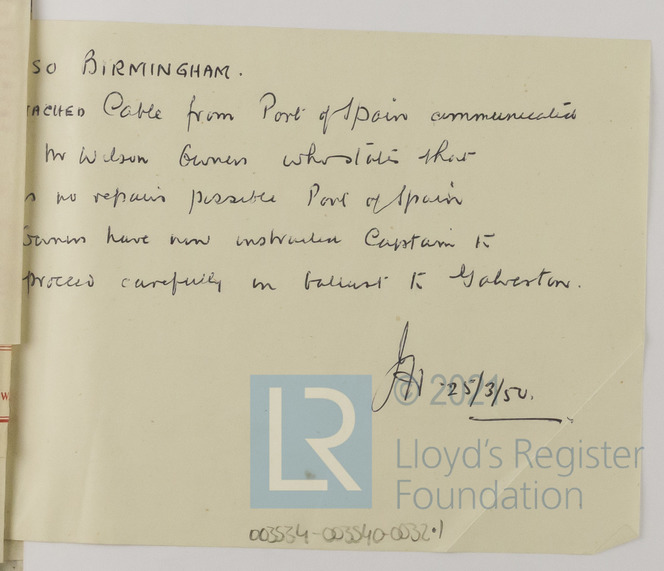 SO BIRMINGHAM.
TACHED Cable from Port of Spain communicated
Mr Wilson Owners who states that
s no repairs possible Port of Spain
Owners have now instructed Captain to
proceed carefully in ballast to Galveston.
25/3/50.
© 2021
LR
Lloyd's Register
Foundation
003534-003540-0032·1